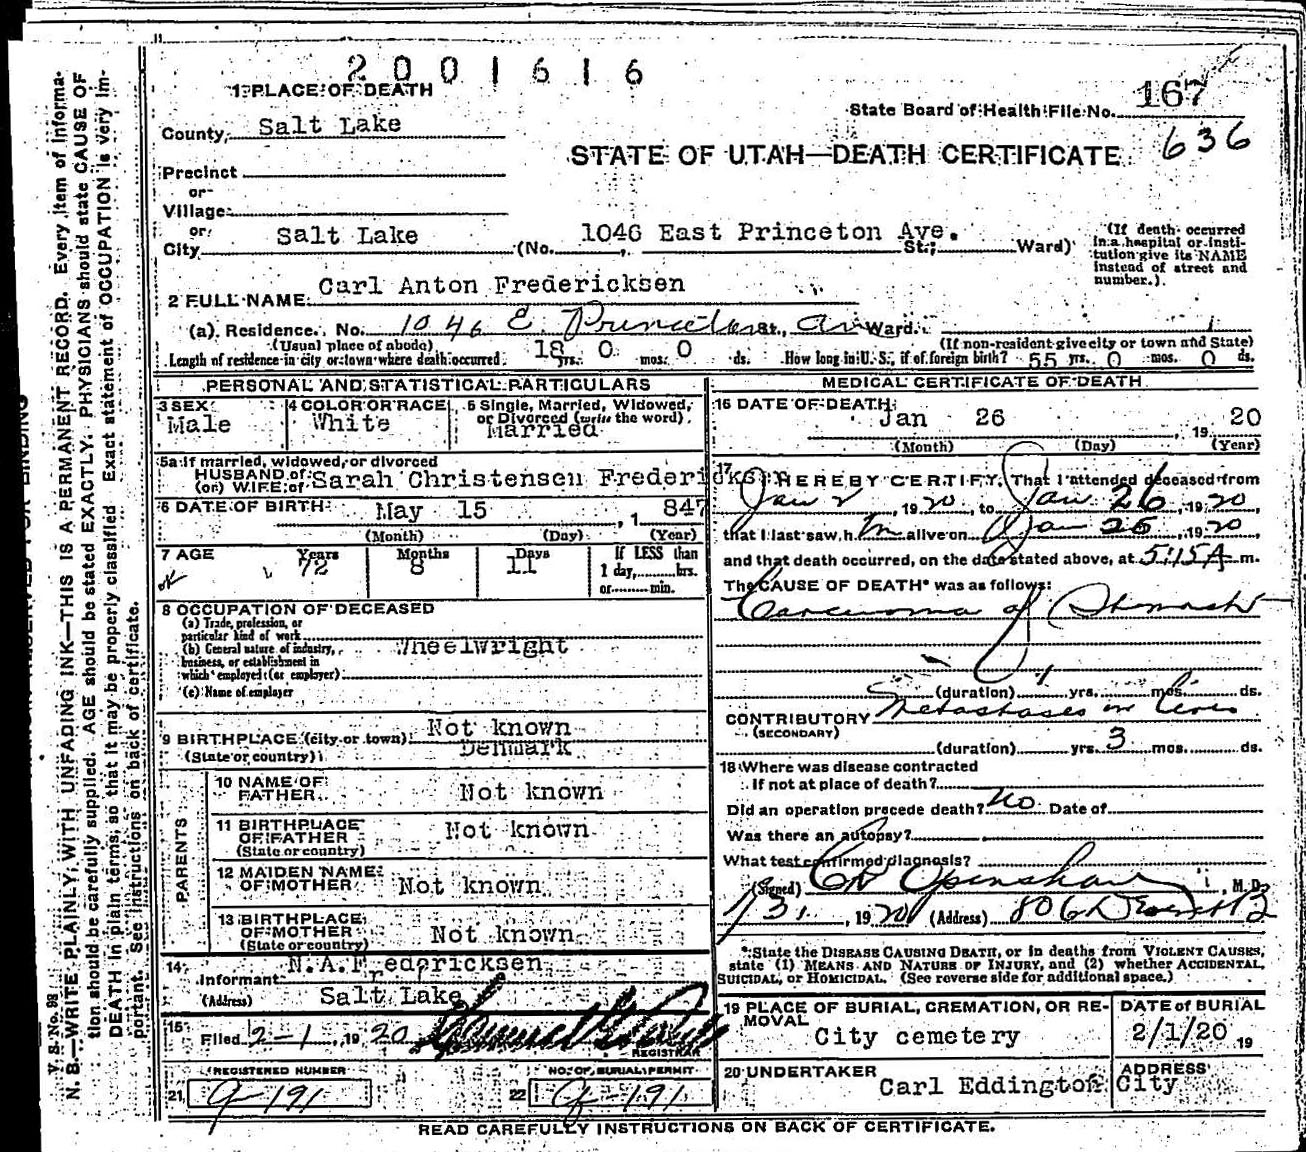 2001616
1 PLACE OF DEATH
State Board of Health File No. 167
County, Salt Lake
636
STATE OF UTAH—DEATH CERTIFICATE
Precinct
or
Village
or
City Salt Lake (No. 1046 East Princeton Ave. St.; Ward)
(If death occurred in a hospital or institution give its NAME instead of street and number.)
2 FULL NAME Carl Anton Fredericksen
(a) Residence. No. 1046 E. Princeton St., Av Ward.
(Usual place of abode) (If non-resident give city or town and State)
Length of residence in city or town where death occurred 18 yrs. 0 mos. 0 ds. How long in U. S., if of foreign birth? 55 yrs. 0 mos. 0 ds.
PERSONAL AND STATISTICAL PARTICULARS
3 SEX Male
4 COLOR OR RACE White
5 Single, Married, Widowed, or Divorced (write the word) Married
5a If married, widowed, or divorced
HUSBAND of (or) WIFE of Sarah Christensen Fredericks
6 DATE OF BIRTH May 15, 1847
(Month) (Day) (Year)
7 AGE Years 72 Months 8 Days 11 If LESS than 1 day,.....hrs. or.....min.
8 OCCUPATION OF DECEASED
(a) Trade, profession, or particular kind of work
(b) General nature of industry, business, or establishment in which employed (or employer) Wheelwright
(c) Name of employer
9 BIRTHPLACE (city or town) Not known
(State or country) Denmark
PARENTS
10 NAME OF FATHER Not known
11 BIRTHPLACE OF FATHER (State or country) Not known
12 MAIDEN NAME OF MOTHER Not known
13 BIRTHPLACE OF MOTHER (State or country) Not known
14 Informant N.A.Fredericksen
(Address) Salt Lake
15 Filed 2-1, 1920
REGISTRAR
REGISTERED NUMBER
21 G-191
NO. OF BURIAL PERMIT
22 G-191
MEDICAL CERTIFICATE OF DEATH
16 DATE OF DEATH Jan 26, 1920
(Month) (Day) (Year)
17 I HEREBY CERTIFY, That I attended deceased from
Jan 2, 1920, to Jan 26, 1920
that I last saw him alive on Jan 26, 1920
and that death occurred, on the date stated above, at 5:15A m.
The CAUSE OF DEATH* was as follows:
Carcinoma of Stomach
(duration) 1 yrs. mos. ds.
CONTRIBUTORY Metastases in liver
(SECONDARY)
(duration) yrs. 3 mos. ds.
18 Where was disease contracted
If not at place of death?
Did an operation precede death? No Date of
Was there an autopsy?
What test confirmed diagnosis?
(Signed) Openshaw, M. D.
1/31, 1920 (Address) 806
*State the DISEASE CAUSING DEATH, or in deaths from VIOLENT CAUSES,
state (1) MEANS AND NATURE OF INJURY, and (2) whether ACCIDENTAL,
SUICIDAL, or HOMICIDAL. (See reverse side for additional space.)
19 PLACE OF BURIAL, CREMATION, OR REMOVAL City cemetery
DATE of BURIAL 2/1/20 19
20 UNDERTAKER Carl Eddington
ADDRESS City
READ CAREFULLY INSTRUCTIONS ON BACK OF CERTIFICATE.
V. S. No. 98
N. B.—WRITE PLAINLY, WITH UNFADING INK—THIS IS A PERMANENT RECORD. Every item of informa-
tion should be carefully supplied. AGE should be stated EXACTLY. PHYSICIANS should state CAUSE OF
DEATH in plain terms, so that it may be properly classified. Exact statement of OCCUPATION is very im-
portant. See instructions on back of certificate.